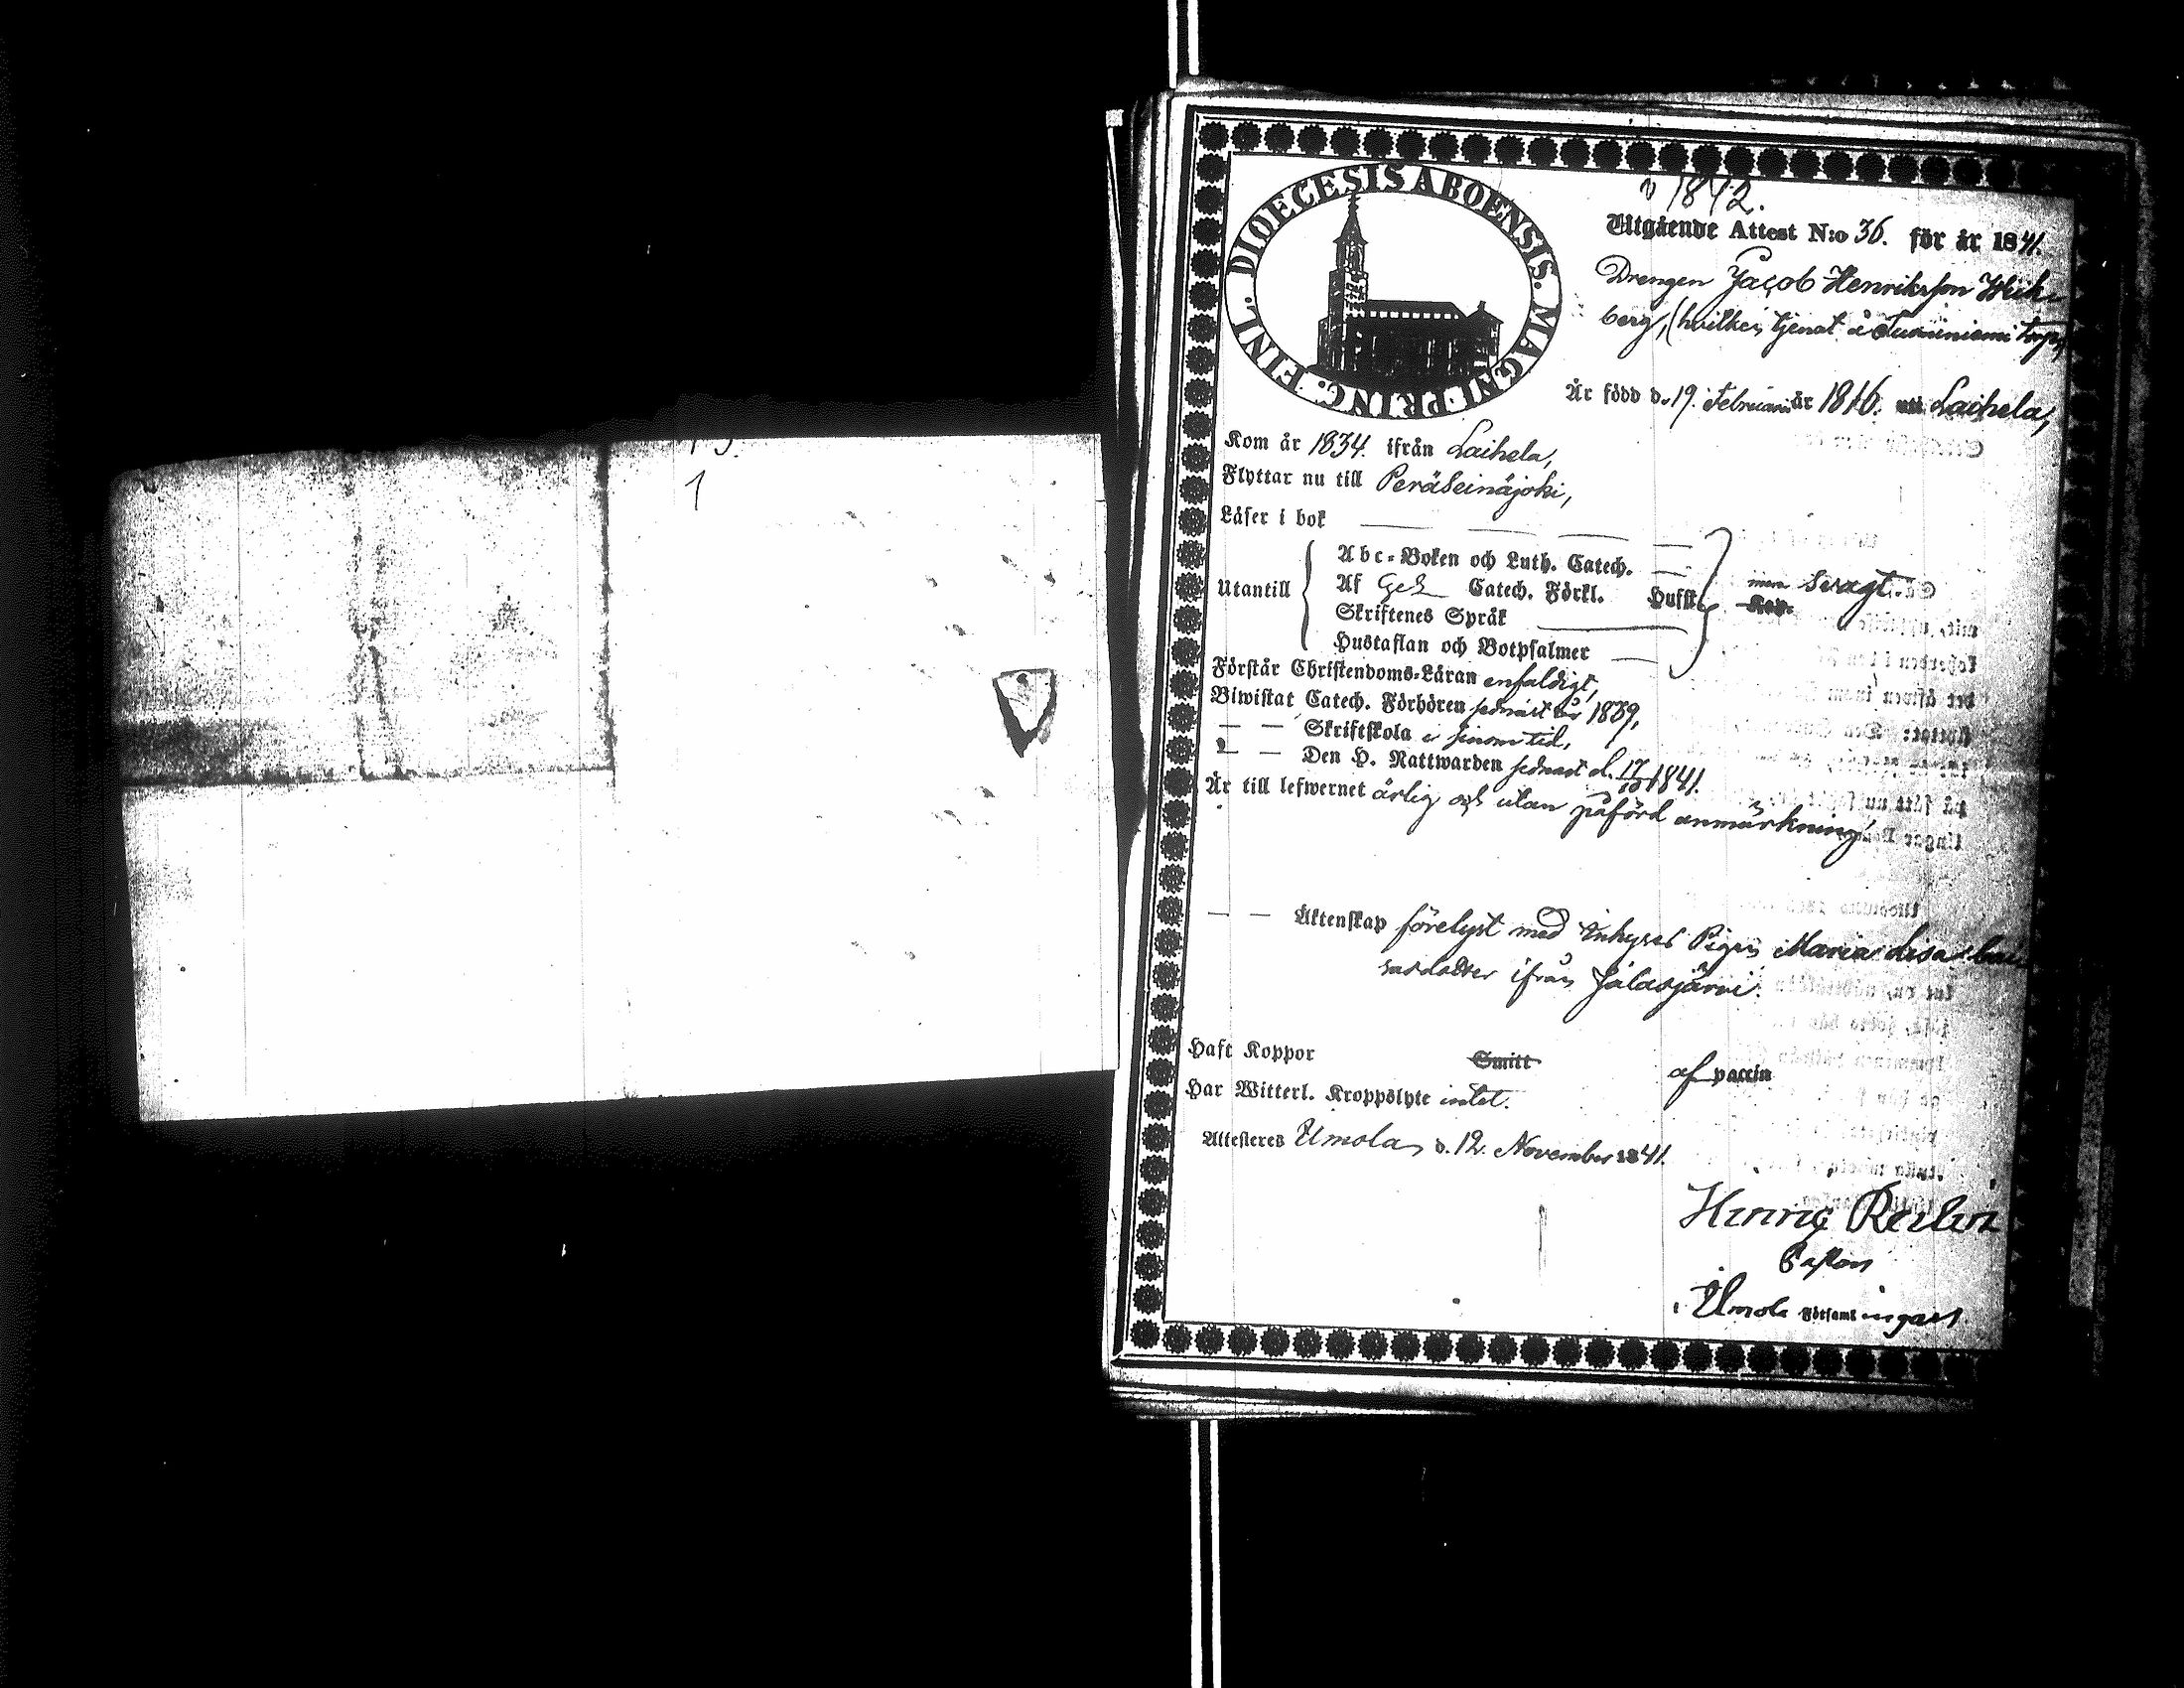 1
DIOECESIS ABOENSIS. MAGNI PRINC. FINL.
1842.
Utgående Attest N:o 36. för år 1841.
Drengen Jacob Henriksson
berg, (hvilken tjenat å torp,
Är född d. 19. Februari år 1816. uti Laihela,
Kom år 1834. ifrån Laihela,
Flyttar nu till Peräseinäjoki,
Läser i bok
Utantill
Abc-Boken och Luth. Catech.
Af Catech. Förkl. Hufst.
Skriftenes Språk
Hustaflan och Botpsalmer
svagt.
Förstår Christendoms-Läran enfaldigt,
Biwistat Catech. Förhören sednast år 1839,
— — Skriftskola i sinom tid,
— — Den H. Nattwarden sednast d. 17/10 1841.
Är till lefwernet ärlig och utan påförd anmärkning,
— — Äktenskap förelyst med Inhyses Pigan Maria Lisa
ifrån Jalasjärvi.
Haft Koppor Smitt af vaccin
Har Witterl. Kroppslyte intet.
Attesteres Ilmola d. 12. November 1841.
Henric
Pastor
i Ilmola Församlingar